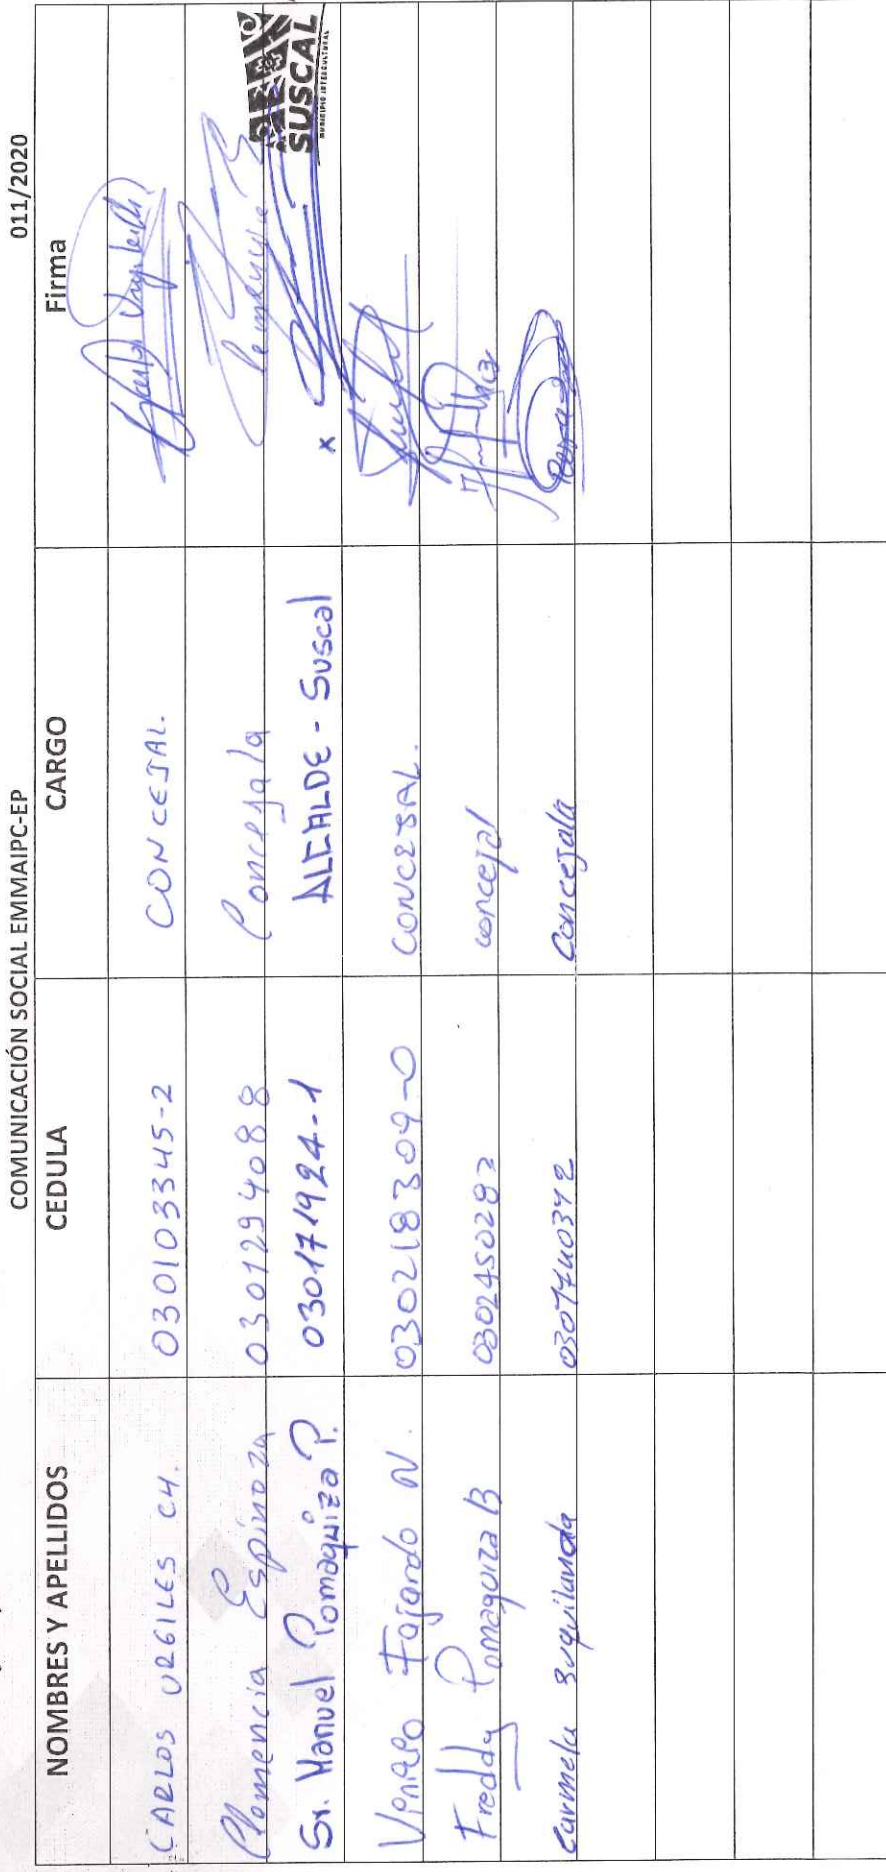 COMUNICACIÓN SOCIAL EMMAIPC-EP 011/2020
NOMBRES Y APELLIDOS CEDULA CARGO Firma
CARLOS URGILES CH. 030103345-2 CONCEJAL.
Clemencia Espinoza 0301294088 Concejala Clemencia E
Sr. Manuel Pomaquiza P. 030171924-1 ALCALDE - Suscal x
SUSCAL
MUNICIPIO INTERCULTURAL
Fajardo N. 030218309-0 CONCEJAL.
Freddy Pomaquiza B 0302450282 concejal
Carmela Suquilanda 0301740342 Concejala